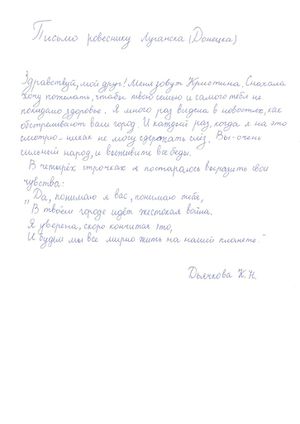 Письмо ровеснику Луганска (Донецка)
Здравствуй, мой друг! Меня зовут Кристина. Сначала
хочу пожелать, чтобы твою семью и самого тебя не
покидало здоровье. Я много раз видела в новостях, как
обстреливают ваш город. И каждый раз, когда я на это
смотрю - никак не могу сдержать слёз. Вы - очень
сильный народ, и выживите все беды.
В четырёх строчках я постаралась выразить свои
чувства:
"Да, понимаю я вас, понимаю тебя,
В твоём городе идёт жестокая война.
Я уверена, скоро кончится это,
И будем мы все мирно жить на нашей планете."
Дьячкова К.Н.